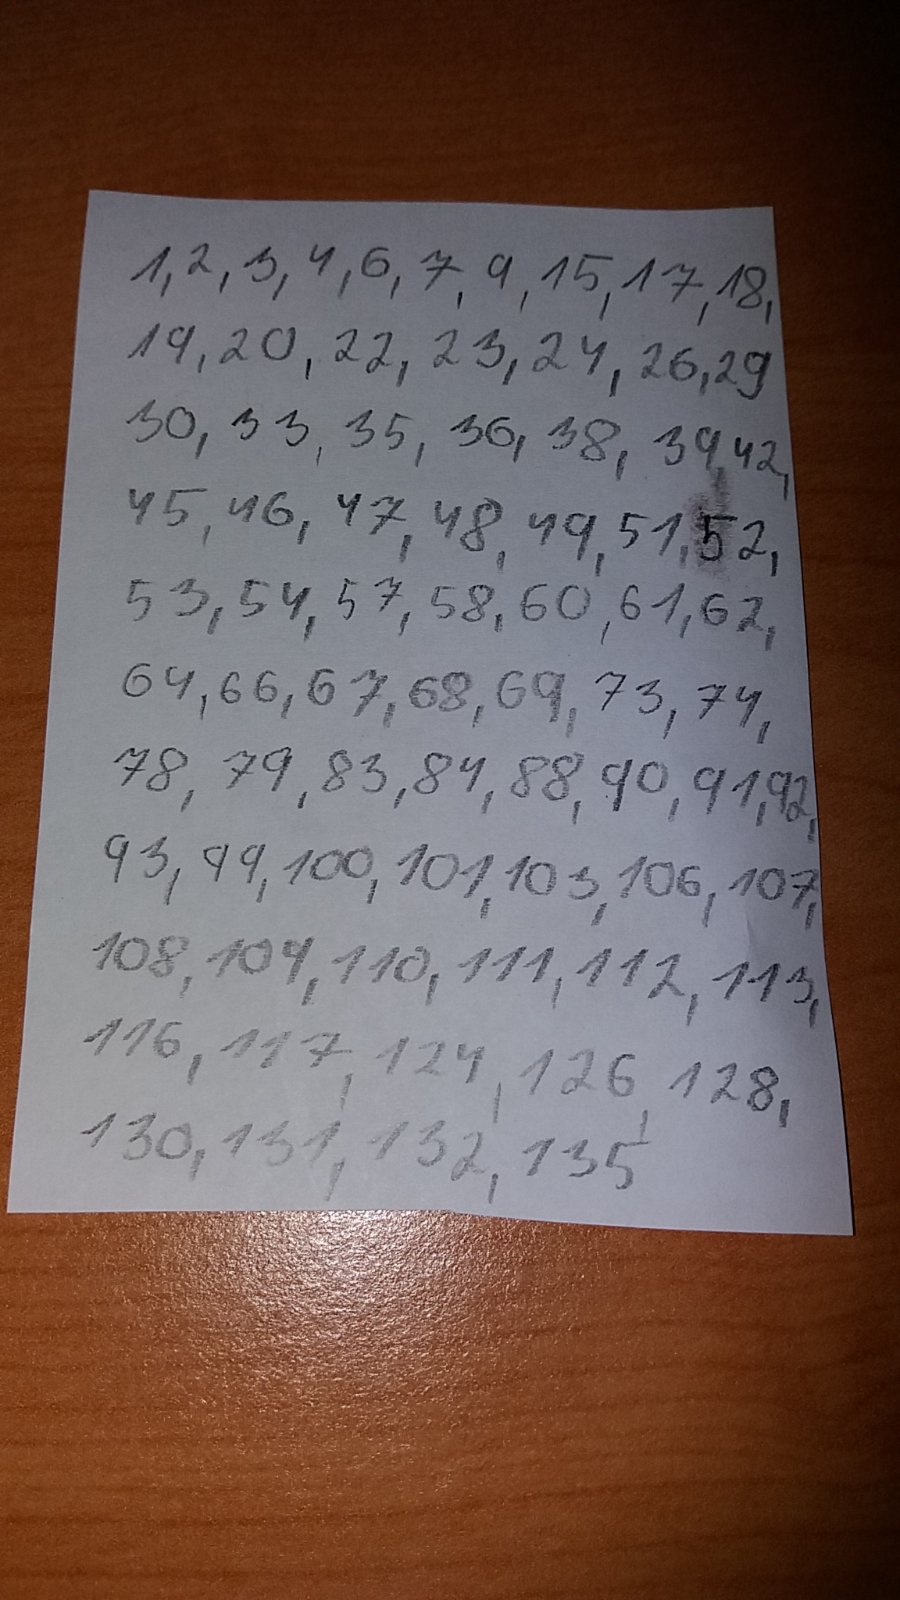 1, 2, 3, 4, 6, 7, 9, 15, 17, 18,
19, 20, 22, 23, 24, 26, 29
30, 33, 35, 36, 38, 39, 42,
45, 46, 47, 48, 49, 51, 52,
53, 54, 57, 58, 60, 61, 62,
64, 66, 67, 68, 69, 73, 74,
78, 79, 83, 84, 88, 90, 91, 92,
93, 99, 100, 101, 103, 106, 107,
108, 109, 110, 111, 112, 113,
116, 117, 124, 126, 128,
130, 131, 132, 135